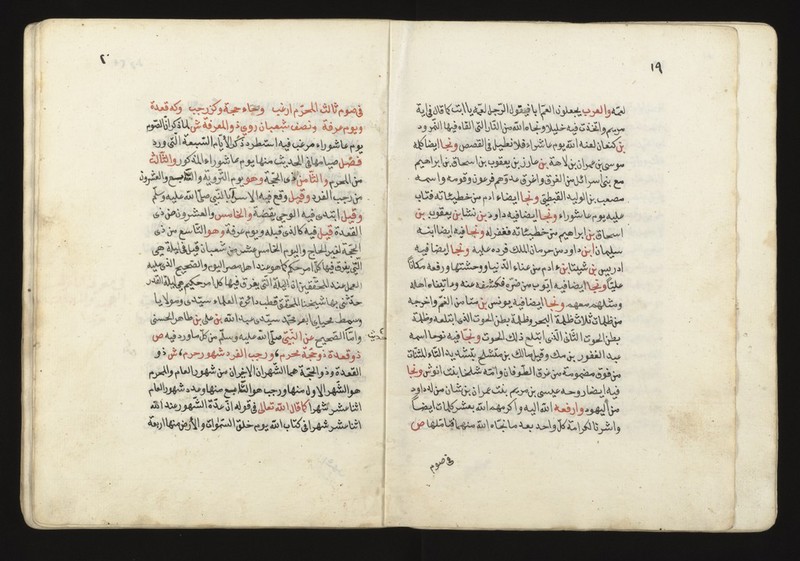 ١٩
لعمّه والعرب يجعلون العمّ ابا فيقول الرجل لعمّه يا ابت كما قال في اية
مريم واتخذت فيه خليلا ونجاه الله من النار التي القاه فيها النمرود
بن كنعان لعنه الله يوم عاشراء فلا تعطيل في القصص ونجا ايضا كلمه
موسى بن عمران بن لاهتة بن عازر بن يعقوب بن اسحاق بن ابراهيم
مع بني اسرائل من الغرق واغرق عدوّهم فرعون وقومه واسمه
مصعب بن الوليد القبطي ونجا ايضا ادم من خطيئاته فتاب
عليه يوم عاشوراء ونجا ايضا فيه داود بن يعقوب بن
اسحاق بن ابراهيم من خطيئاته فغفر له ونجا فيه ايضا ابنه
سليمان ابن داود من الملك فرده عليه ونجا ايضا فيه
ادريس بن شيث بن ءادم من عناء الدنيا ووحشتها ورفعه مكانا
عليّا ونجا ايضا فيه ايوب من ضره فكشفه عنه وعافاه اهله
ومثلهم معهم ونجا ايضا فيه يونس بن متا من الغم واخرجه
من ظلمات ثلاث ظلمة البحر وظلمة بطن الحوت الذي ابتلعه وظلمة
بطن الحوت الثاني الذي ابتلع ذلك الحوت ونجا فيه نوحا اسمه
عبد الغفور بن لمك وقيل مالك بن متشلخ بتشديد التاء المثناة
من فوق مضمومة من غرق الطوفان وامّه شلحا بنت انوش ونجا
فيه ايضا روحه عيسى بن مريم بنت عمران بن من اله داود
من اليهود وارفعه الله اليه واكرمهم الله بعشر كرامات ايضا
واشر تا لكرامة كل واحد بعد ما نجاه الله منهما بتاملها ص
في صوم
٢٠
في صوم ثالث المحرّم ارغب وجاء حجة وكز رجب وكه قعدة
ويوم عرفة ونصف شعبان روي ذو المعرفة ش لما ذكر ان الصوم
يوم عاشوراء مرغب فيه استطرد ذكر الايام السبعة التي ورد
فضل صيامها في الحديث منها يوم عاشوراء المذكور والثالث
من المحرم والثامن ذي الحجة وهو يوم التروية والسابع والعشرون
من رجب الفرد وقيل وقع فيه الاسراء بالنبي صلى الله عليه وسلم
وقيل ابتدي فيه الوحي يقضة والخامس والعشرون من ذي
القعدة قيل فيه كالذي قبله ويوم عرفة وهو التاسع من ذي
الحجة لغير الحاج واليوم الخامس عشر من شعبان قيل في ليلته هي
التي يفرق فيها كل امر حكيم كما هو عند اهل مصر اليوم والصحيح الذي عليه
العمل عند المحققين ان الليلة التي يفرق فيها كل امر حكيم هي ليلة القدر
حدثني بها شيخنا المحقق قطب دائرة العلماء سيدي ومولايا
وسمط محياي ابو محمد سيدي عبد الله بن علي بن طاهر الحسني
وامّا الصحيح عن النبي صلى الله عليه وسلم من كل ما ورد فيه ص
حديث
ذو قعدة وذو حجة محرم ورجب الفرد شهور حرم ش ذو
القعدة وذو الحجة هما الشهران الاخيران من شهور العام والمحرم
هو الشهر الاول منها ورجب هو السابع منها وعدد شهور العام
اثنا عشر شهرا كما قال الله تعالى في قوله ان عدة الشهور عند الله
اثنا عشر شهرا في كتاب الله يوم خلق السموات والارض منها اربعة